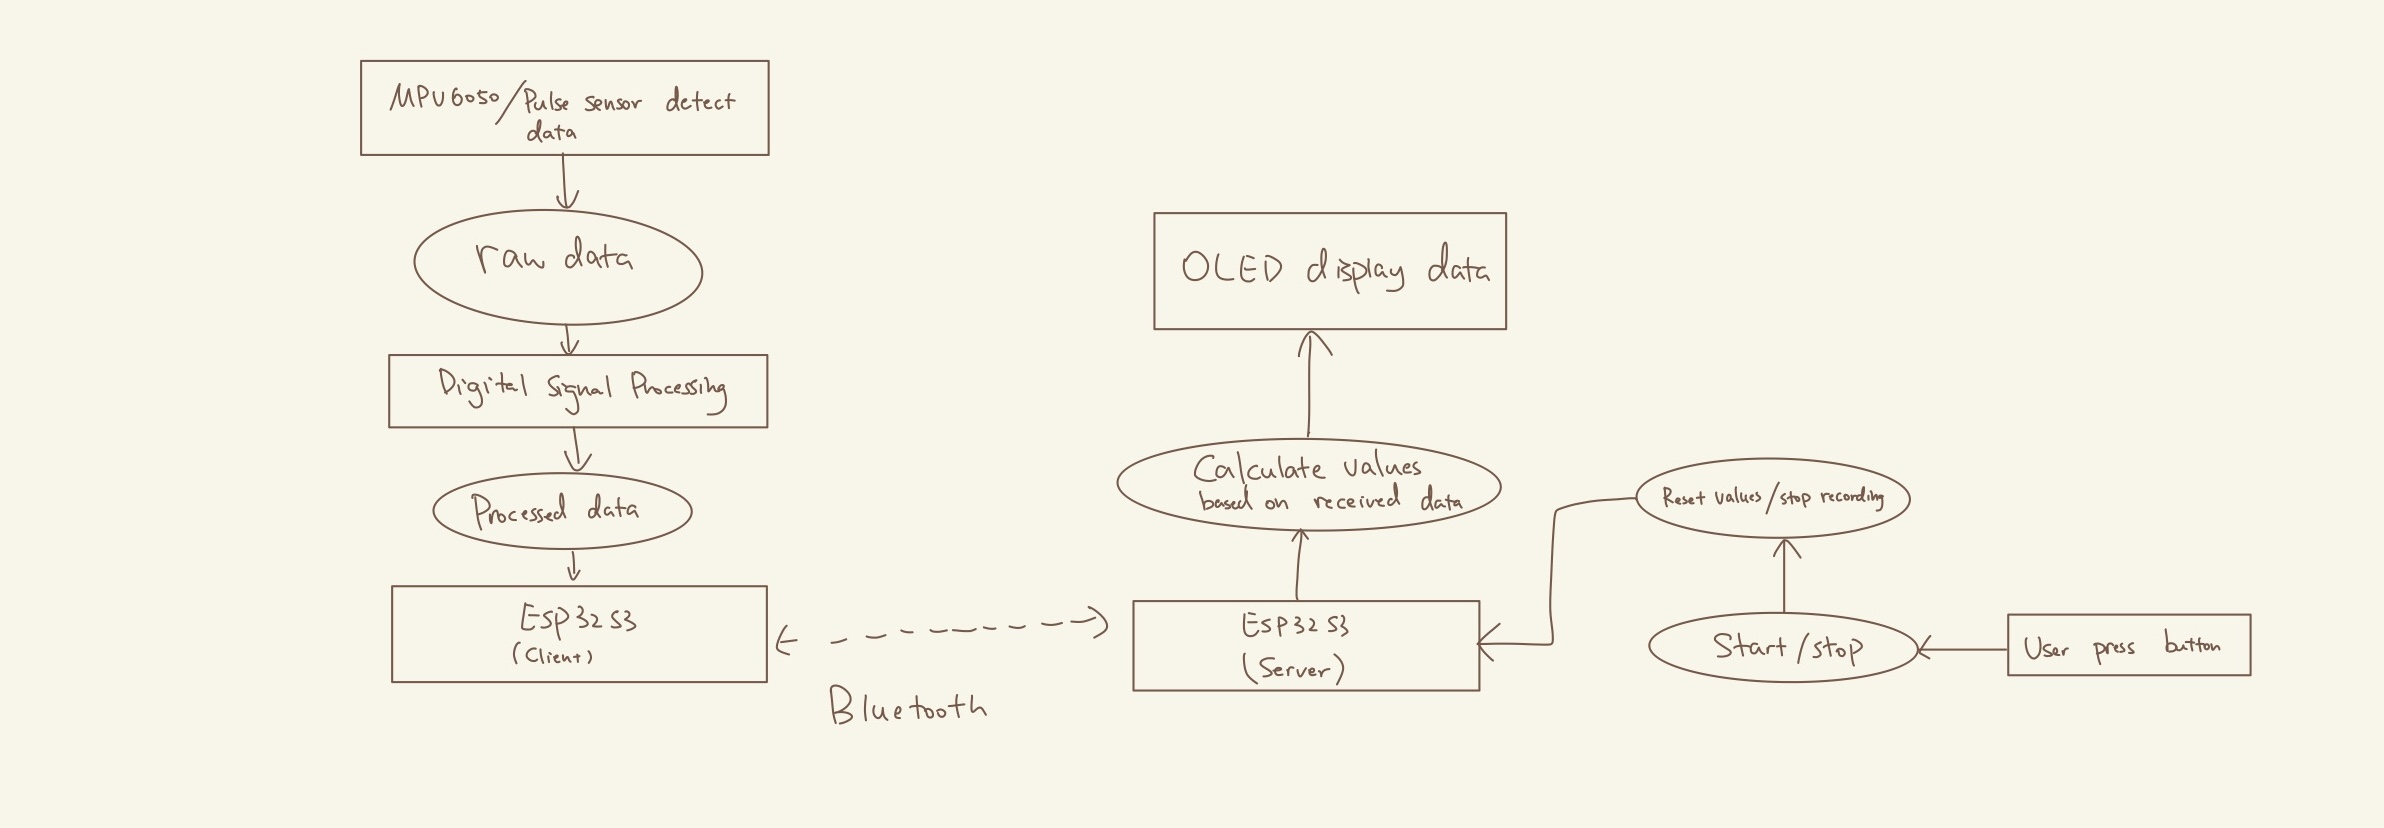 MPU6050/Pulse sensor detect
data
raw data
Digital Signal Processing
Processed data
Esp32s3
(Client)
Bluetooth
OLED display data
Calculate values
based on received data
Esp32s3
(Server)
Reset values/stop recording
Start/stop
User press button